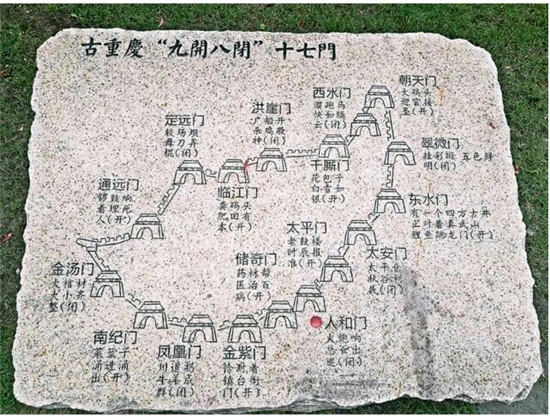 古重慶“九開八閉”十七門
朝天门
大码头
迎官接
圣(开)
西水门
溜跑马
快如腾
云(闭)
洪崖门
广船开
杀鸡敬
神(闭)
定远门
较场坝
舞刀弄
棍(闭)
翠微门
挂彩缎 五色鲜
明(闭)
千厮门
花包子
白雪如
银(开)
通远门
锣鼓响
看埋死
人(开)
临江门
粪码头
肥田有
本(开)
东水门
有一个四方古井
正对着真武山
鲤鱼跳龙门(开)
太平门
老鼓楼
时辰报
准(开)
太安门
太平仓
储奇门
药材帮
医治百
病(开)
金汤门
木棺材
大小齐
整(闭)
人和门
火炮响
总爷出
巡(闭)
南纪门
菜篮子
涌进涌
出(开)
凤凰门
川道拐
牛羊成
群(闭)
金紫门
恰对着
镇台衙
门(开)